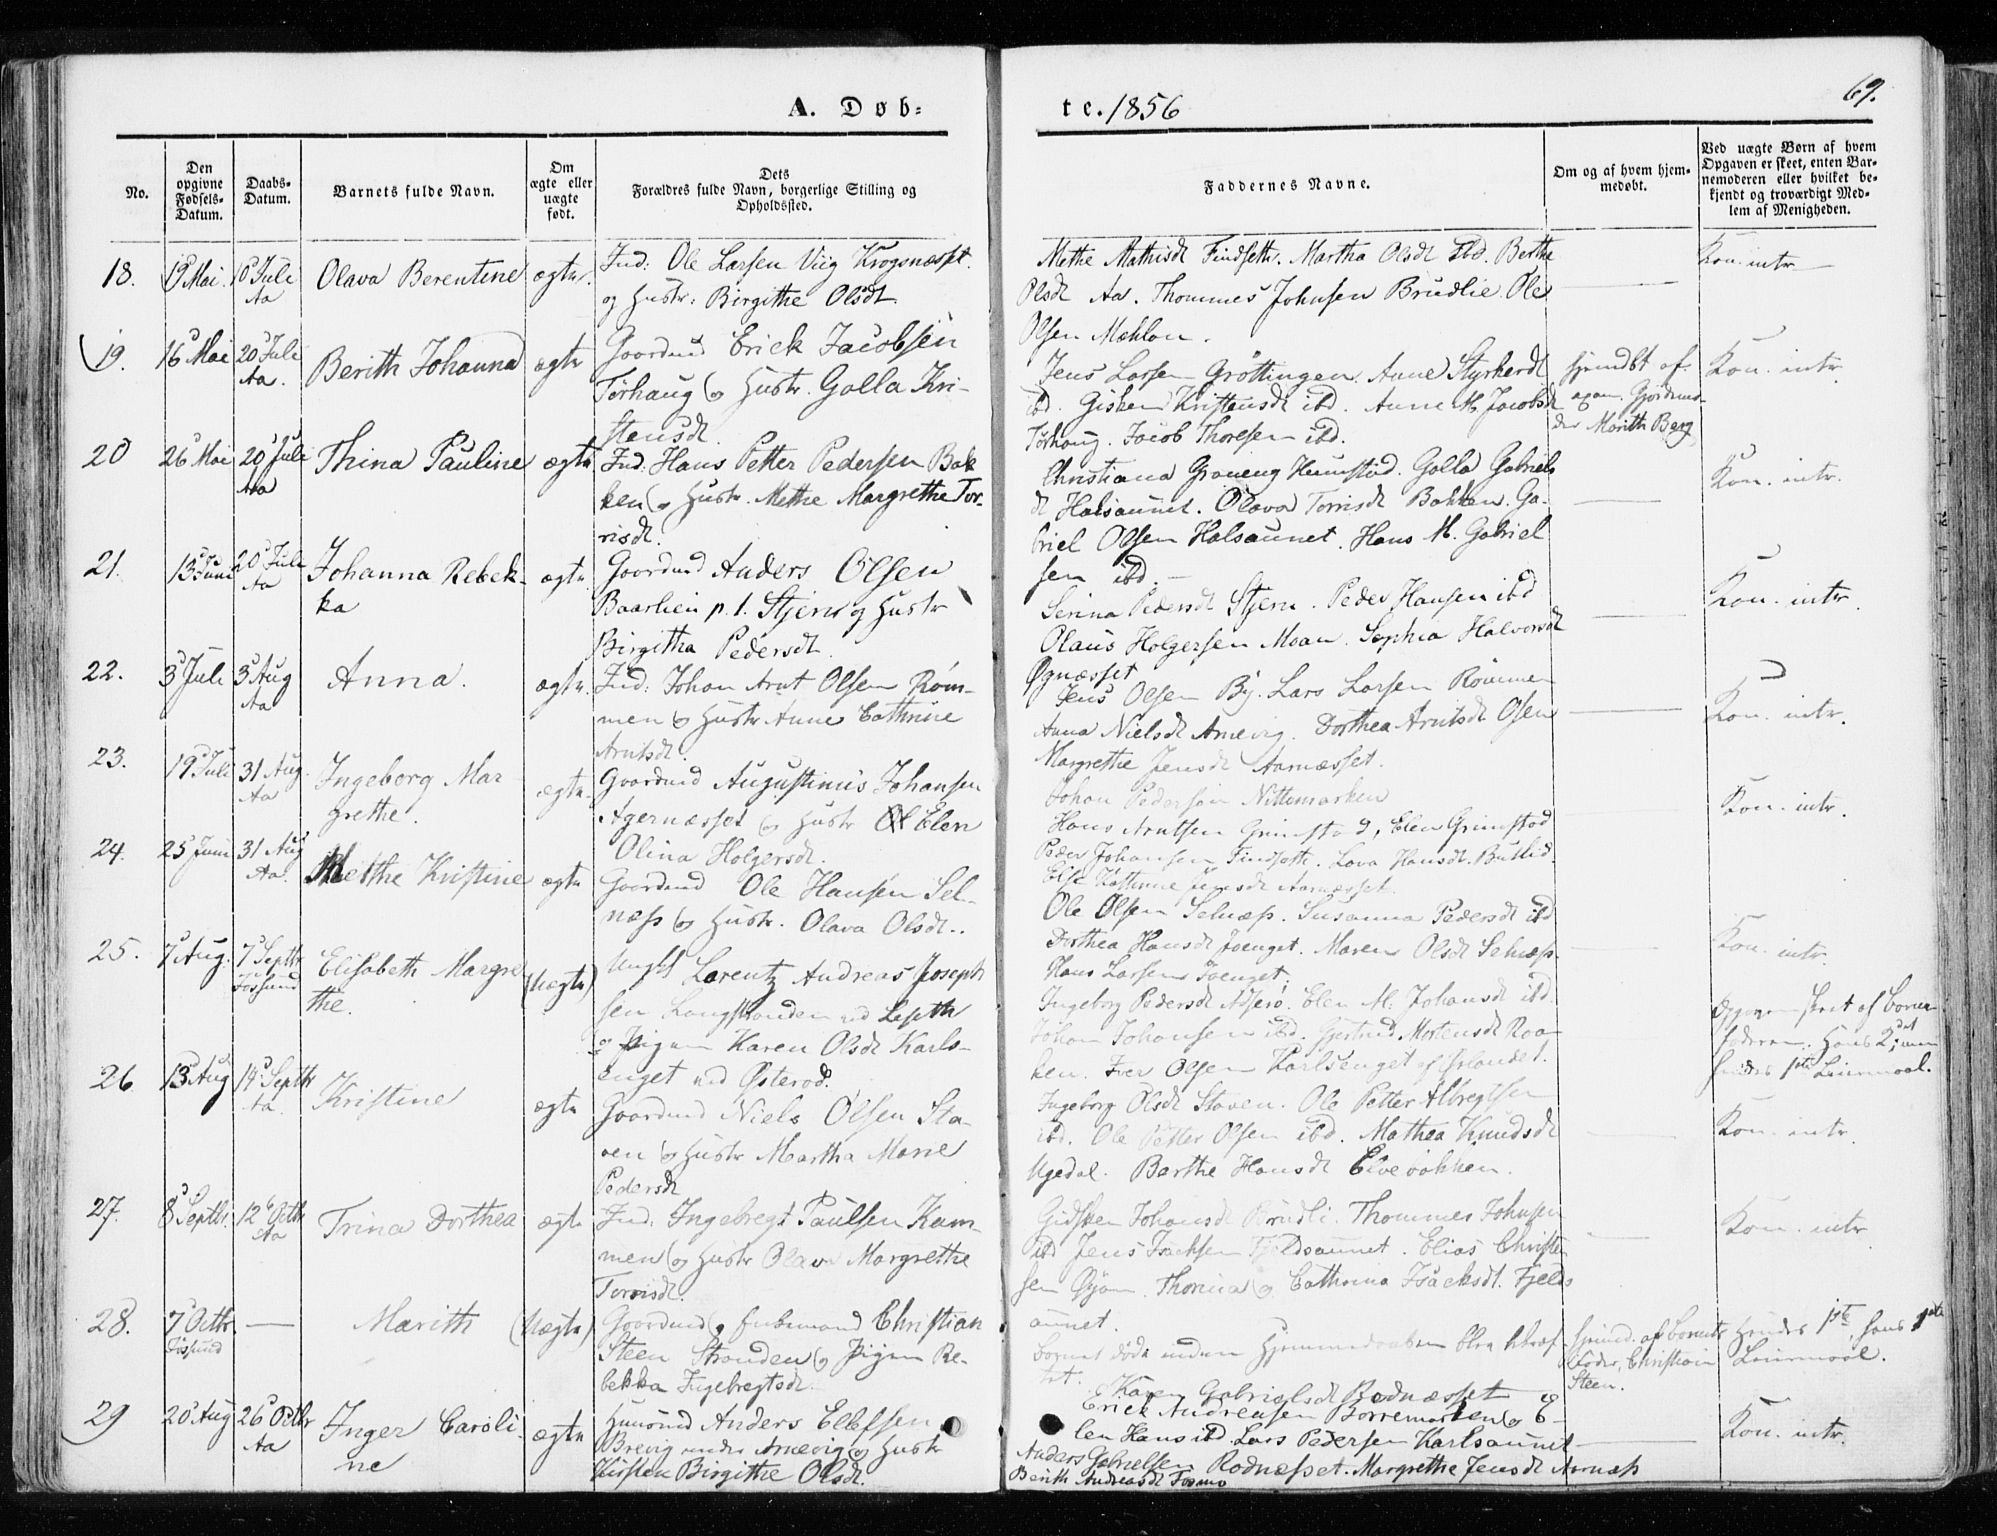 A. Døb-
te. 1856
69.
No.
Den opgivne Fødsels-Datum.
Daabs-Datum.
Barnets fulde Navn.
Om ægte eller uægte født.
Dets Forældres fulde Navn, borgerlige Stilling og Opholdssted.
Faddernes Navne.
Om og af hvem hjem-medøbt.
Ved uægte Børn af hvem Opgaven er skeet, enten Bar-nemoderen eller hvilket be-kjendt og troværdigt Med-lem af Menigheden.
18. 19 Mai 10 Juli Aa Olava Berentine ægte
Ind: Ole Larsen Viig Krogsnæsset
og Hustr: Birgithe Olsdt.
Methe Mathisdt Findseth. Martha Olsdt ibd. Berthe
Olsdt Aa. Thommes Johnsen Brudlie. Ole
Olsen Mæhlan.
Kon. intr.
19. 16 Mai 20 Juli Aa. Berith Johanna ægte
Gaardmd Erick Jacobsen
Tørhaug og Hustr. Golla Kri-
stensdt.
Jens Larsen Grøttingen. Anne Styrkerdt
ibd. Gisken Kristensdt ibd. Anne M. Jacobsdt
Tørhaug. Jacob Thoresen ibd.
hjemdbt af
Marith Berg
Kon. intr.
20 26 Mai 20 Juli Aa Thina Pauline ægte
Ind. Hans Petter Pedersen Bak
ken og Hustr. Methe Margrethe Tor-
risdt.
Christiana Hemstad. Golla Gabriels
dt Halsaunet. Olava Torrisdt Bakken. Ga-
briel Olsen Halsaunet. Hans M. Gabriel
sen ibd.
Kon. intr.
21. 13 Juni 20 Juli Aa Johanna Rebek-
ka ægte
Gaardmd Anders Olsen
Baarlien p. t. Stjern og Hustr
Birgitha Pedersdt.
Serina Pedersdt Stjern. Peder Hansen ibd
Olaus Holgersen Moan. Sophia Halvorsdt
Øgnæsset
Kon. intr.
22. 3 Juli 3 Aug Aa Anna. ægte.
Ind: Johan Arnt Olsen Røm-
men og Hustr Anne Cathrine
Arntsdt.
Jens Olsen By. Lars Larsen Rømmen
Anna Nielsdt Arnevig. Dorthea Arntsdt Osen
Margrethe Jensdt Aarnæsset.
Kon. intr.
23. 19 Juli 31 Aug. Aa Ingeborg Mar-
grethe. ægte.
Gaardmd Augustinus Johansen
Agernæsset og Hustr Elen
Olina Holgersdt.
Johan Pedersen Nittemarken
Hans Arntsen Grimstad, Elen Grimstad
Peder Johansen Findseth. Lova Hansdt Butlid.
Else Kathrine Jensdt Aarnæsset.
Kon. intr.
24. 25 Juni 31 Aug Aa. Methe Kristine ægte
Gaardmd Ole Hansen Sel-
næss og Hustr. Olava Olsdt.
Ole Olsen Selnæss. Susanna Pedersdt ibd
Dorthea Hansdt Joenget. Maren Olsdt Selnæss.
Hans Larsen Joenget.
Kon. intr.
25. 7 Aug. 7 Septbr Jøssund Elisabeth Margre
the. (Uægte)
Ungkl Lorentz Andreas Joseph
sen Langstranden ved Lysth
og Pigen Karen Olsdt Karls-
enget ved Østerod.
Ingeborg Pedersdt Adserø. Elen M. Johansdt ibd.
Johan Johansen ibd. Gjertrud Mortensdt Roa-
ken. Iver Olsen Karlsenget
Opgaven skeet af Barne-
faderen. Hans 2det men
hendes 1ste Leiermaal.
26. 13 Aug 14 Septbr Aa. Kristine ægte
Gaardmd Niels Olsen Sta-
ven og Hustr Martha Marie
Pedersdt
Ingeborg Olsdt Staven. Ole Petter Albregtsen
ibd. Ole Petter Olsen ibd. Mathea Knudsdt
Ugedal. Barthe Hansdt Elvebakken.
Kon. intr.
27. 8 Septbr. 12 Octbr Aa Trina Dorthea ægte
Ind: Ingebregt Paulsen Kam-
men og Hustr Olava Margrethe
Torrisdt.
Gidsken Johansdt Brudli. Thommes Johnsen
ibd Jens Isachsen Fjeldsaunet. Elias Christen
sen Øyan. Thorina og Cathrina Isacksdt. Fjelds
aunet.
Kon. intr.
28. 7 Octbr. Jøssund Marith (Uægte)
Gaardmd og Enkemand Christian
Steen Stranden og Pigen Re-
bekka Ingebregtsdt.
Barnet døde inden Hjemmedaaben blev bekræf-
tet.
Hjemd. af Barnets
Fader, Christian
Steen.
Hendes 1ste, hans 1ste
Leiermaal.
29 20 Aug 26 Octbr Aa Inger Caroli-
ne ægte
Huusmd Anders Elefsen
Brevig under Arnevig og Hustr
Kirsten Birgithe Olsdt.
Karen Gabrielsdt Rodnæsset
Erick Andreasen Borremarken og E-
len Hansd ibd. Lars Pedersen Karlsaunet
Anders Gabrielsen Rodnæsset. Margrethe Jensdt Aarnæss
Berith Andreasdt Fosmo
Kon. intr.